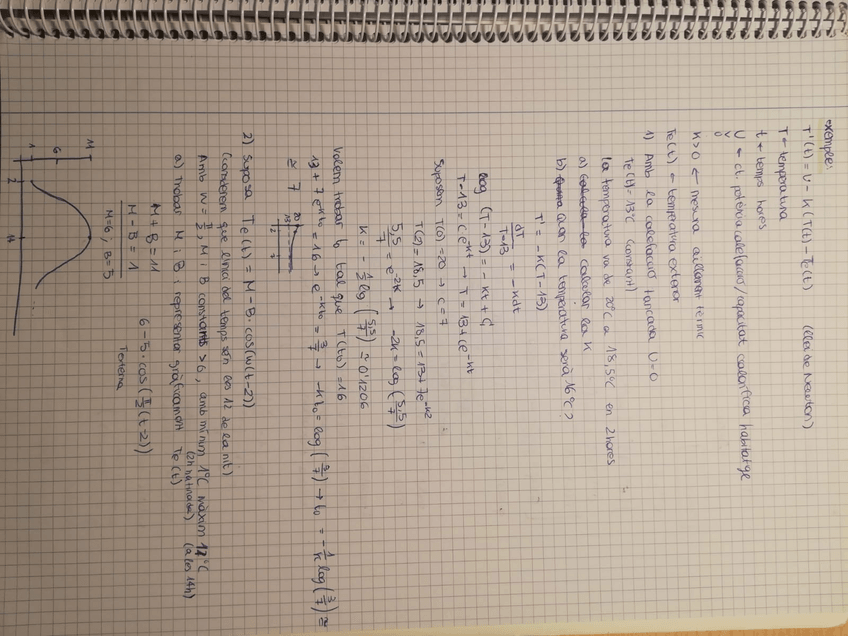 exemple:
T'(t) = U - K (T(t) - Te(t)) (llei de Newton)
T ← temperatura
t ← temps hores
U ← ct. potència calefacció / capacitat calorífica habitatge
V
0
K>0 ← mesura aïllament tèrmic
Te(t) ← temperatura exterior
1) Amb la calefacció tancada U=0
Te(t)=13°C (constant)
la temperatura va de 20°C a 18,5°C en 2 hores
a) calculem la K
b) quan la temperatura serà 16°C?
T' = -K(T-13)
dT/T-13 = -Kdt
log (T-13) = -Kt + C
T-13 = Ce^-Kt → T = 13 + Ce^-Kt
Suposem T(0)=20 → C=7
T(2)=18,5 → 18,5 = 13+7e^-K2
5,5/7 = e^-2K → -2K = log(5,5/7)
K = -1/2 log(5,5/7) ≈ 0'1206
Volem trobar t0 tal que T(t0)=16
13 + 7 e^-Kt0 = 16 → e^-Kt0 = 3/7 → -Kt0 = log(3/7) → t0 = -1/K log(3/7) ≈
≈ 7
20
18
2
7
2) Suposa Te(t) = M - B · cos(w(t-2))
(considerem que l'inici del temps són les 12 de la nit)
Amb W = , M i B constants > 0, amb mínim 1°C màxim 11°C
(2h matinada) (a les 14h)
a) Trobar M i B i representar gràficament Te(t)
M + B = 11
M - B = 1
M=6, B=5
6 - 5 · cos( (t-2))
Te
11
6
1
2
14
...